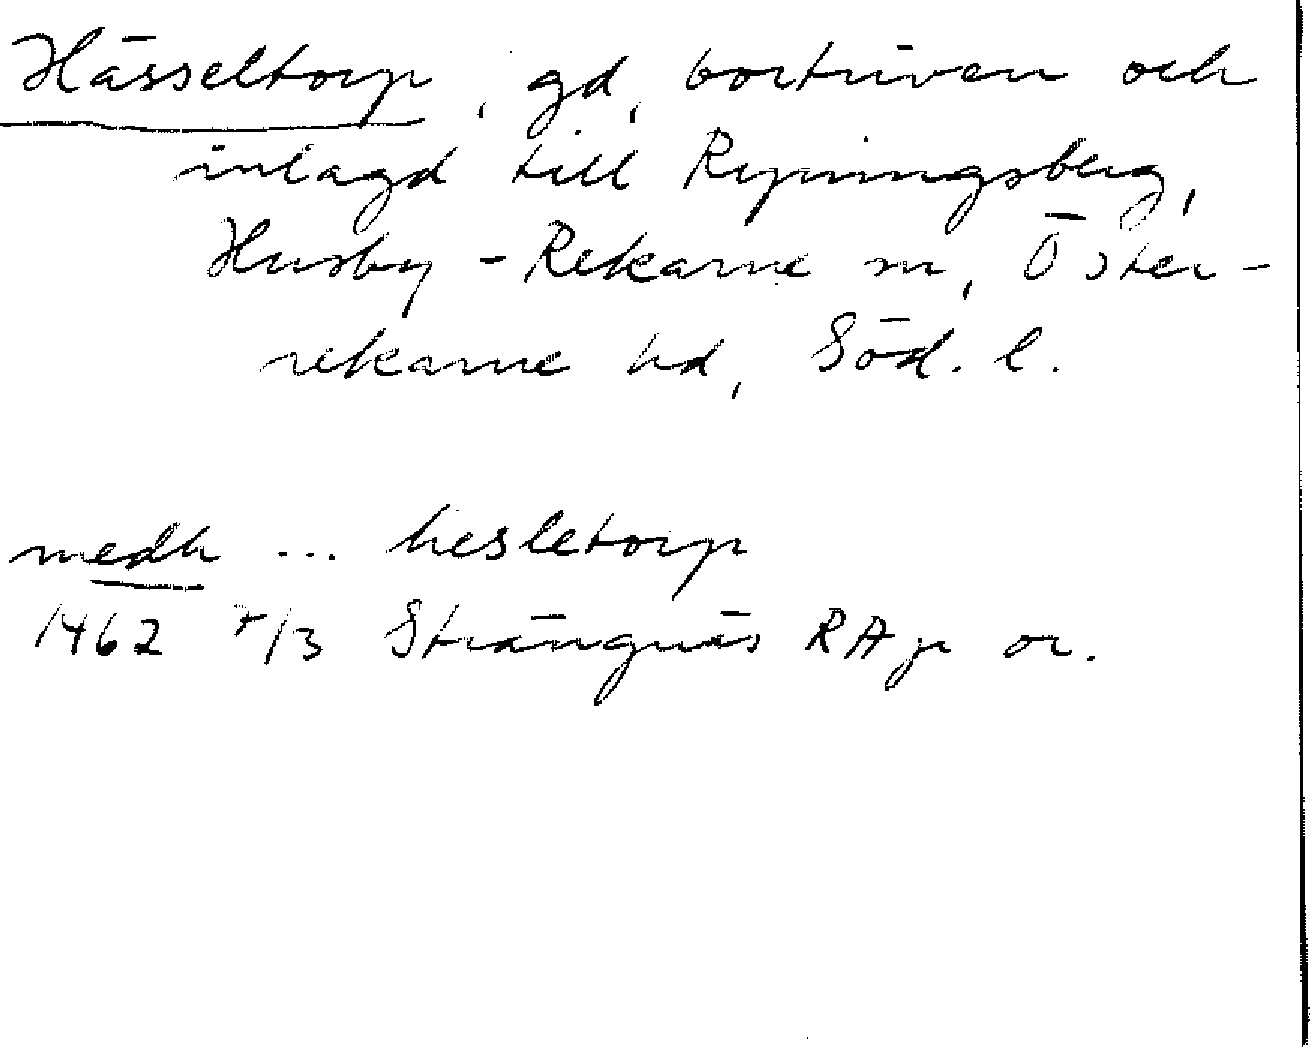 Hässeltorp, gd, bortriven och
inlagd till Ryningsberg,
Husby-Rekarne sn, Öster-
rekarne hd, Söd. l.
medh ... hesletorp
1462 /3 Strängnäs RAp or.